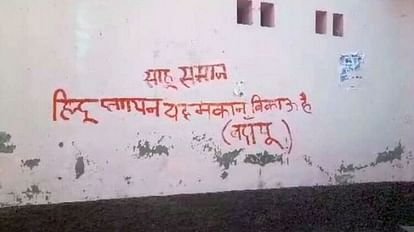 साहू समाज
हिन्दू पलायन यह मकान विकाऊ है
(बदायू)